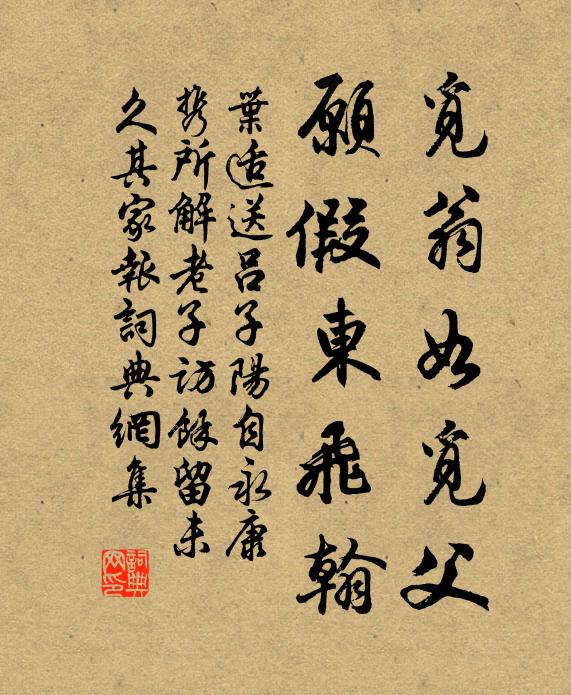 覓翁如覓父
願假東飛翰
葉适送呂子陽自永康
攜所解老子訪餘留未
久其家報詞典網集
詞典
网印